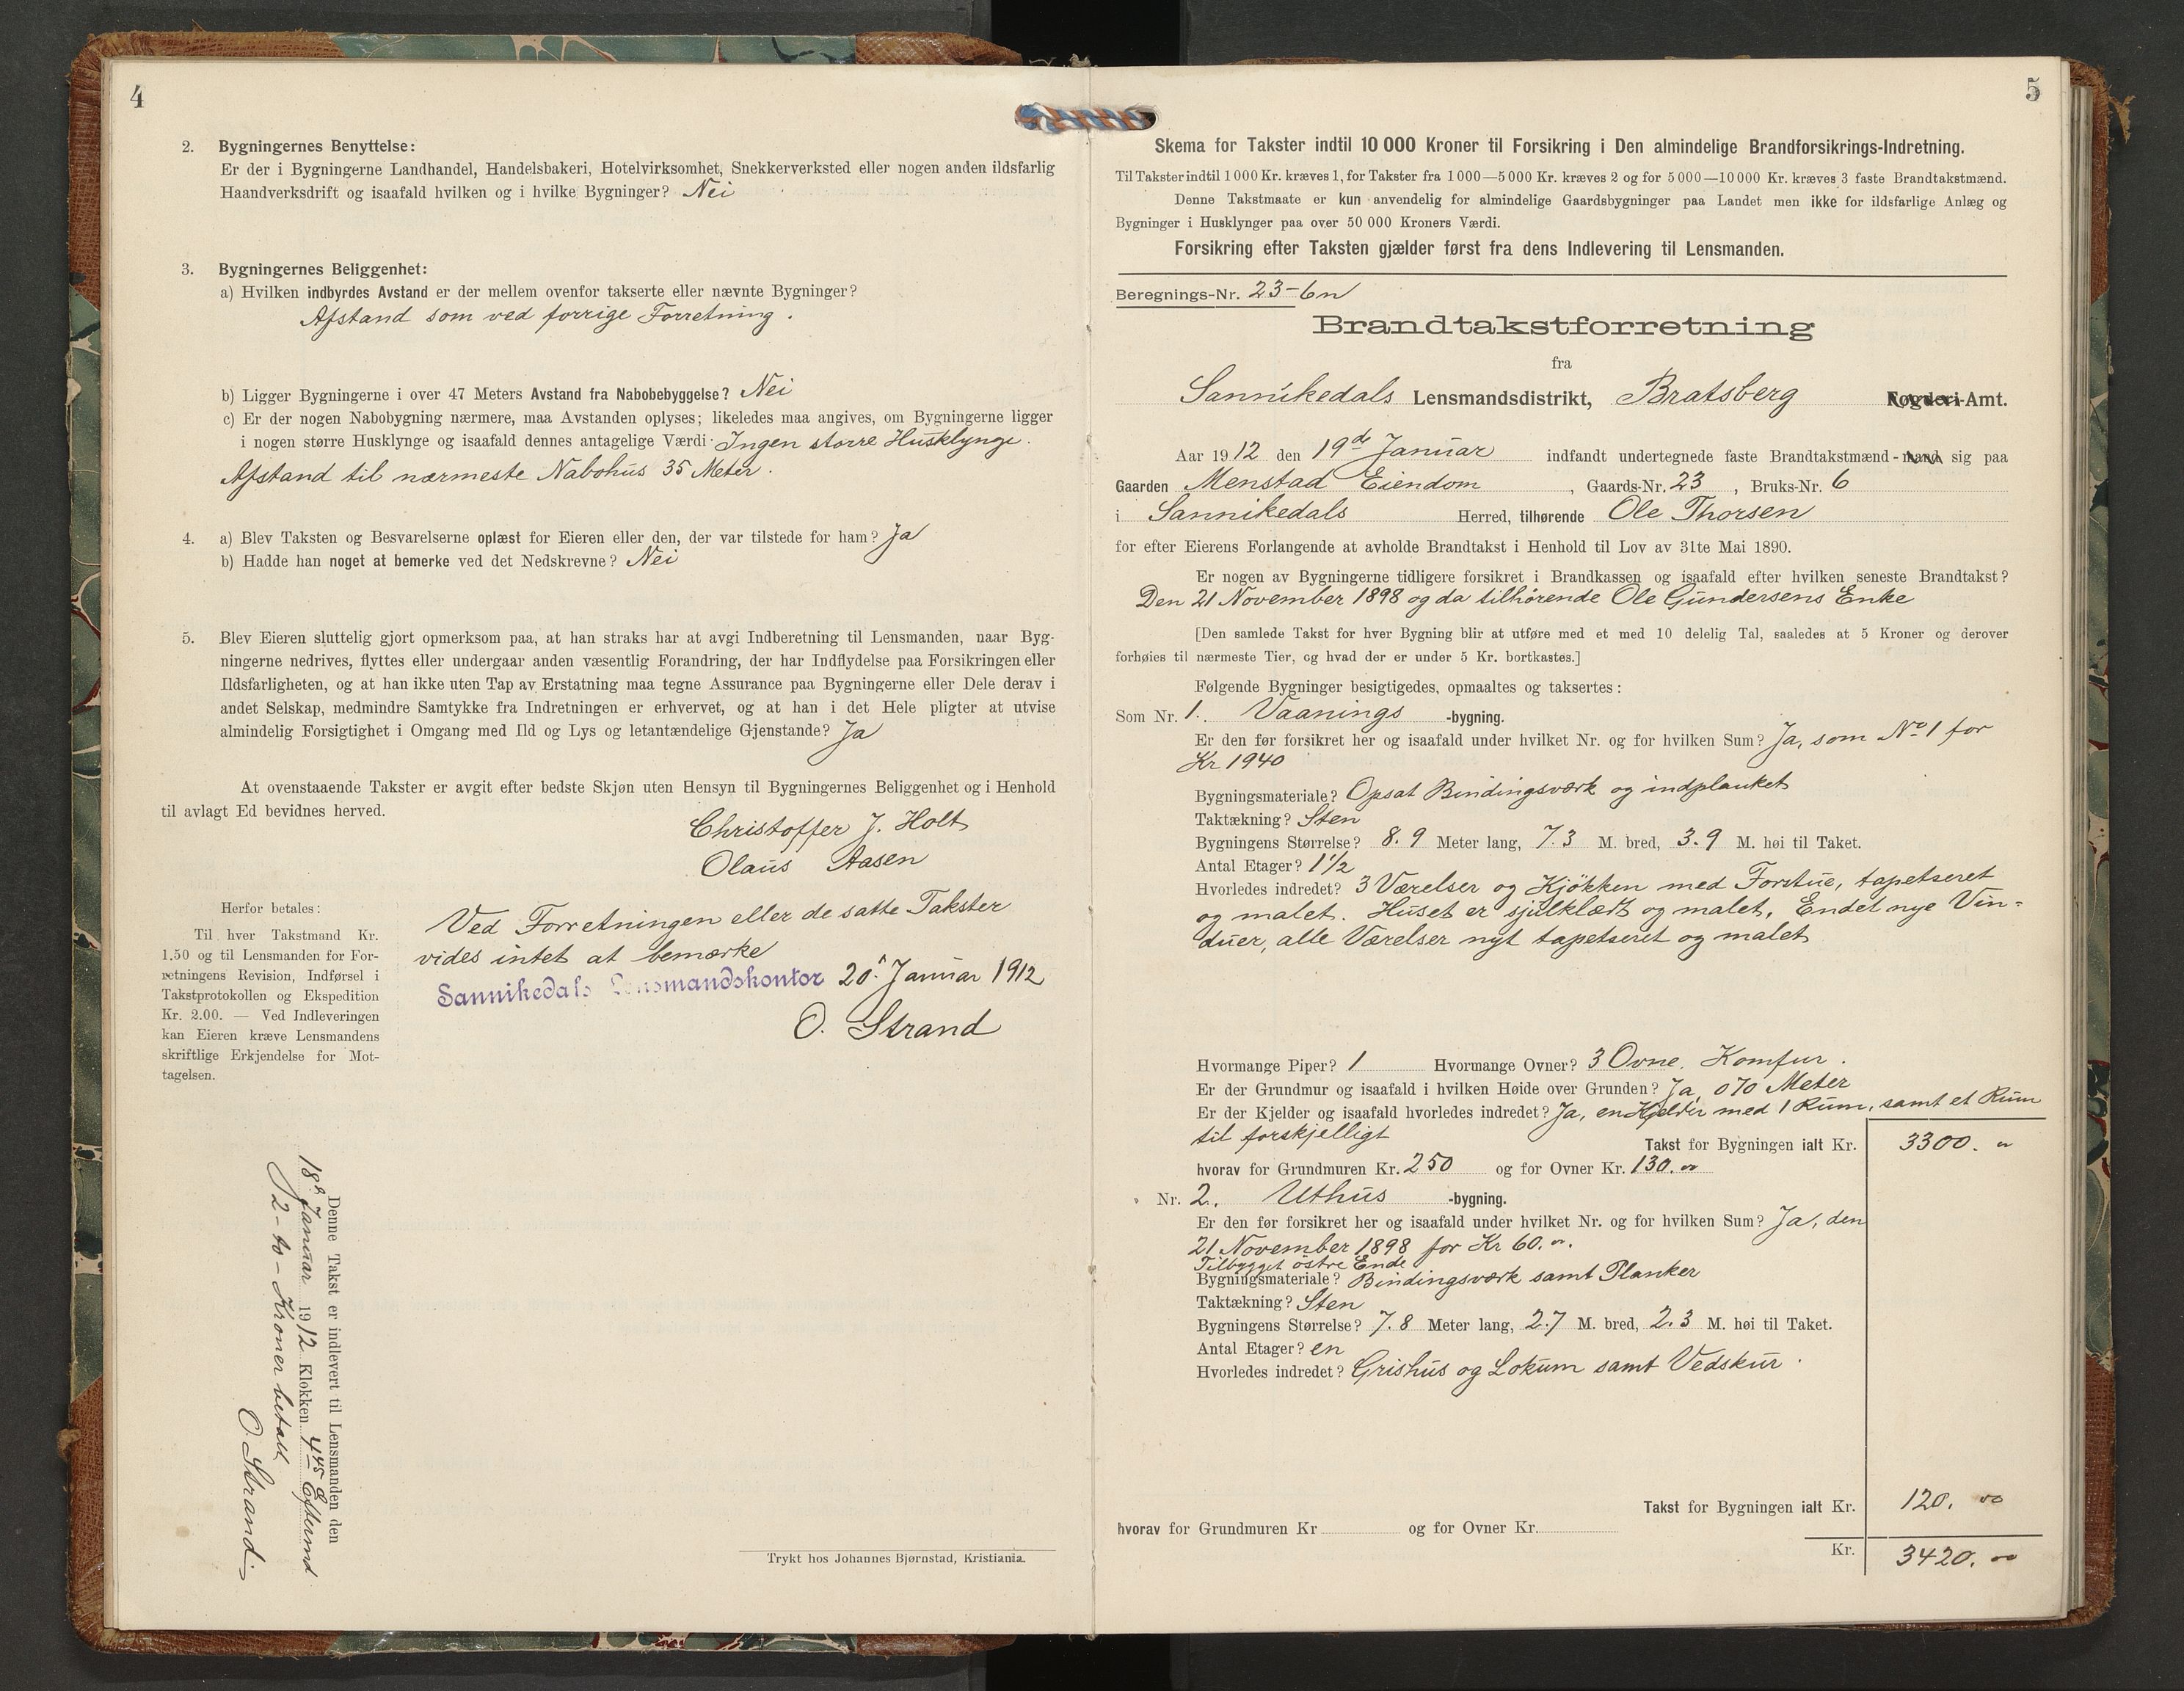 4
2. Bygningernes Benyttelse:
Er der i Bygningerne Landhandel, Handelsbakeri, Hotelvirksomhet, Snekkerverksted eller nogen anden ildsfarlig
Haandverksdrift og isaafald hvilken og i hvilke Bygninger? Nei
3. Bygningernes Beliggenhet:
a) Hvilken indbyrdes Avstand er der mellem ovenfor takserte eller nævnte Bygninger?
Afstand som ved forrige Forretning.
b) Ligger Bygningerne i over 47 Meters Avstand fra Nabobebyggelse? Nei
c) Er der nogen Nabobygning nærmere, maa Avstanden oplyses; likeledes maa angives, om Bygningerne ligger
i nogen større Husklynge og isaafald dennes antagelige Værdi: Ingen større Husklynge.
Afstand til nærmeste Nabohus 35 Meter.
4. a) Blev Taksten og Besvarelserne oplæst for Eieren eller den, der var tilstede for ham? Ja
b) Hadde han noget at bemerke ved det Nedskrevne? Nei
5. Blev Eieren sluttelig gjort opmerksom paa, at han straks har at avgi Indberetning til Lensmanden, naar Byg-
ningerne nedrives, flyttes eller undergaar anden væsentlig Forandring, der har Indflydelse paa Forsikringen eller
Ildsfarligheten, og at han ikke uten Tap av Erstatning maa tegne Assurance paa Bygningerne eller Dele derav i
andet Selskap, medmindre Samtykke fra Indretningen er erhvervet, og at han i det Hele pligter at utvise
almindelig Forsigtighet i Omgang med Ild og Lys og letantændelige Gjenstande? Ja
At ovenstaaende Takster er avgit efter bedste Skjøn uten Hensyn til Bygningernes Beliggenhet og i Henhold
til avlagt Ed bevidnes herved.
Christoffer J. Holt
Olaus Aasen
Herfor betales:
Til hver Takstmand Kr.
1.50 og til Lensmanden for For-
retningens Revision, Indførsel i
Takstprotokollen og Ekspedition
Kr. 2.00. — Ved Indleveringen
kan Eieren kræve Lensmandens
skriftlige Erkjendelse for Mot-
tagelsen.
Ved Forretningen eller de satte Takster
vides intet at bemærke
Sannikedals Lensmandskontor 20 Januar 1912
O. Strand
Denne Takst er indlevert til Lensmanden den
18 Januar 1912 Klokken 4 45 Eftermd
2 - to - Kroner betalt
O. Strand
Trykt hos Johannes Bjørnstad, Kristiania.
5
Skema for Takster indtil 10 000 Kroner til Forsikring i Den almindelige Brandforsikrings-Indretning.
Til Takster indtil 1 000 Kr. kræves 1, for Takster fra 1 000—5 000 Kr. kræves 2 og for 5 000—10 000 Kr. kræves 3 faste Brandtakstmænd.
Denne Takstmaate er kun anvendelig for almindelige Gaardsbygninger paa Landet men ikke for ildsfarlige Anlæg og
Bygninger i Husklynger paa over 50 000 Kroners Værdi.
Forsikring efter Taksten gjælder først fra dens Indlevering til Lensmanden.
Beregnings-Nr. 23-6
Brandtakstforretning
fra
Sannikedals Lensmandsdistrikt, Bratsberg Fogderi-Amt.
Aar 1912 den 19de Januar indfandt undertegnede faste Brandtakstmænd - mand sig paa
Gaarden Menstad Eiendom, Gaards-Nr. 23, Bruks-Nr. 6
i Sannikedals Herred, tilhørende Ole Thorsen
for efter Eierens Forlangende at avholde Brandtakst i Henhold til Lov av 31te Mai 1890.
Er nogen av Bygningerne tidligere forsikret i Brandkassen og isaafald efter hvilken seneste Brandtakst?
Den 21 November 1898 og da tilhørende Ole Gundersens Enke
[Den samlede Takst for hver Bygning blir at utføre med et med 10 delelig Tal, saaledes at 5 Kroner og derover
forhøies til nærmeste Tier, og hvad der er under 5 Kr. bortkastes.]
Følgende Bygninger besigtigedes, opmaaltes og taksertes:
Som Nr. 1. Vaanings-bygning.
Er den før forsikret her og isaafald under hvilket Nr. og for hvilken Sum? Ja, som No 1 for
Kr 1940
Bygningsmateriale? Opsat Bindingsværk og indplanket
Taktækning? Sten
Bygningens Størrelse? 8.9 Meter lang, 7.3 M. bred, 3.9 M. høi til Taket.
Antal Etager? 1½
Hvorledes indredet? 3 Værelser og Kjøkken med Forstue, tapetseret
og malet. Huset er sjulklædt og malet. Endel nye Vin-
duer, alle Værelser nyt tapetseret og malet
Hvormange Piper? 1 Hvormange Ovner? 3 Ovne. Komfur.
Er der Grundmur og isaafald i hvilken Høide over Grunden? Ja, 070 Meter
Er der Kjelder og isaafald hvorledes indredet? Ja, en Kjelder med 1 Rum, samt et Rum
til forskjelligt Takst for Bygningen ialt Kr. 3300.
hvorav for Grundmuren Kr. 250 og for Ovner Kr. 130.
Nr. 2. Uthus-bygning.
Er den før forsikret her og isaafald under hvilket Nr. og for hvilken Sum? Ja, den
21 November 1898 for Kr 60.
Tilbygget østre Ende
Bygningsmateriale? Bindingsværk samt Planker
Taktækning? Sten
Bygningens Størrelse? 7.8 Meter lang, 2.7 M. bred, 2.3 M. høi til Taket.
Antal Etager? en
Hvorledes indredet? Grishus og Lokum samt Vedskur.
Takst for Bygningen ialt Kr. 120. 00
hvorav for Grundmuren Kr og for Ovner Kr.
Kr. 3420. 00